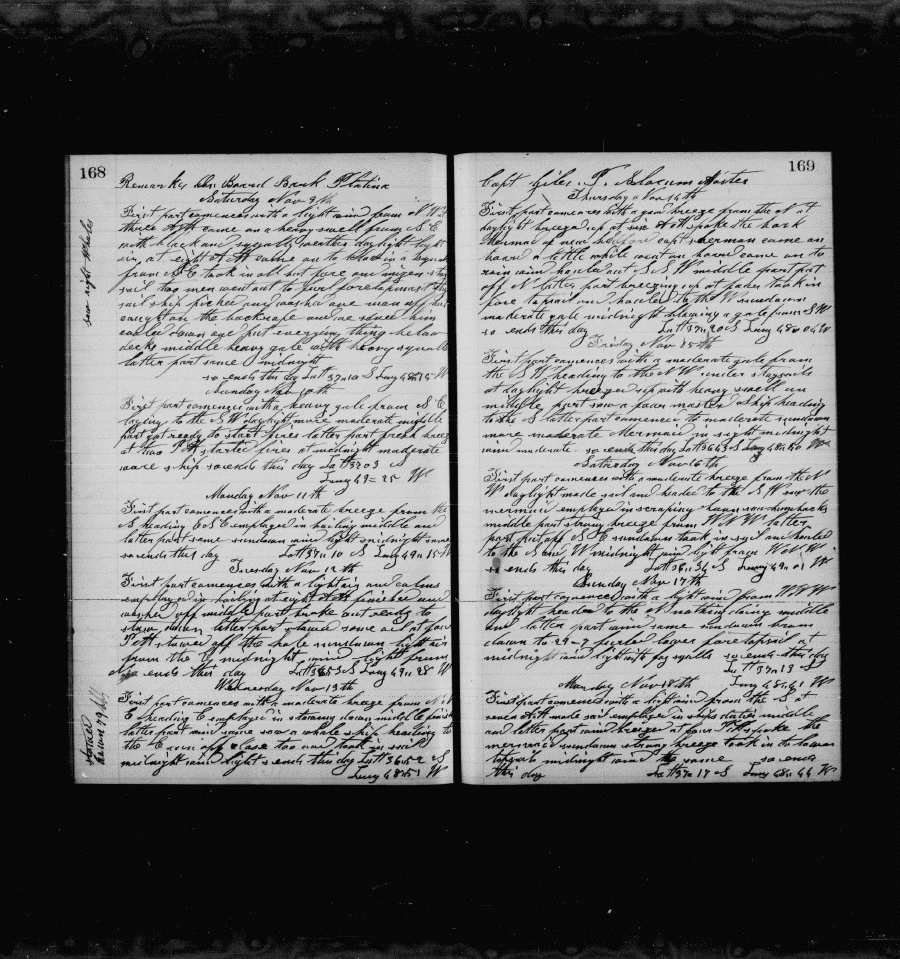 168
Remarks On Board Bark Platina
Saturday Nov 9th
First part comences with a light wind from N W at
three AM came on a heavy swell from S E
with black and squally weather daylight
six, at eight AM came on to blow in a
from S E took in all but fore and mizen stay
sail two men went out to furl foretopmast stay
sail ship piched and washed one man off his
caught on the backrope and we saved him
middle heavy gale with heavy squalls
latter part same midnight
so ends this day Latt 37=10 S Long 48=15 W
Sunday Nov 10th
First part comences with a heavy gale from S E
laying to the S W daylight more moderate middle
part got ready to start fires latter part fresh breeze
at two P M started fires at midnight moderate
ware ship so ends this day Latt 37=03 S
Long 49=25 W
Monday Nov 11th
First part comences with a moderate breeze from the
N heading E S E employed in boiling middle and
latter part same sundown wind light midnight same
so ends this day Latt 37=10 S Long 49=15 W
Tuesday Nov 12th
First part comences with a light air and calms
employed in boiling at eight AM finished and
washed off middle part broke out ready to
stow down latter part stowed some oil at four
P M stowed off the hole sundown light air
from the midnight wind light from
so ends this day Latt 36=30 S Long 49=28 W
Wednesday Nov 13th
First part comences with a moderate breeze from N
E heading E employed in stowing down middle finish
latter part wind same saw a whale ship heading to
the E took in sail
midnight wind light so ends this day Latt 36=52 S
Long 48=51 W
saw right whales
stowed
down 29 bbl
169
Capt Giles. T. Slocum Master
Thursday Nov 14th
First part comences with a good breeze from the N at
daylight breezed up at six AM spoke the bark
Mermaid of new bedford capt sherman came on
board a little while went on board came on to
rain wind hauled out S S W middle part put
off N latter part breezing up at four took in
fore topsail and hauled to the W sundown
moderate gale midnight blowing a gale from S W
so ends this day Latt 37=20 S Long 48=04 W
Friday Nov 15th
First part comences with a moderate gale from
the S W heading to the N W under staysails
at daylight breezed up with heavy swell on
middle part saw a four master ship heading
to the S latter part comenced to moderate sundown
more moderate Mermaid in sight midnight
wind moderate so ends this day Latt 36=43 S Long 48=40 W
Saturday Nov 16th
First part comences with a moderate breeze from the N
W daylight made sail and headed to the S W saw the
mermaid employed in scraping saw humpbacks
middle part strong breeze from W N W latter
part put off S E sundown took in sail and hauled
to the N and W midnight wind light from W N W
so ends this day Latt 36=36 S Long 49=01 W
Sunday Nov 17th
First part comences with a light wind from W N W
daylight headed to the N nothing doing middle
and latter part wind same sundown
furled lower fore topsail at
midnight wind light with fog spells so ends this day
Latt 37=13 S
Long 48=41 W
Monday Nov 18th
First part comences with a light wind from the S at
seven AM made sail employed in ships duties middle
and latter part wind breezed at four PM spoke the
mermaid sundown strong breeze took in the lower
topsails midnight wind the same so ends
this day Latt 37=17 S Long 48=44 W